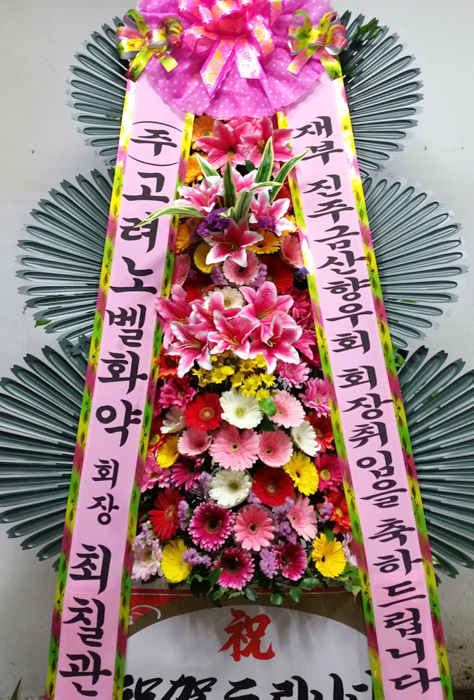 (주)고려노벨화약 회장 최칠관
재부 진주금산향우회 회장취임을 축하드립니다
祝